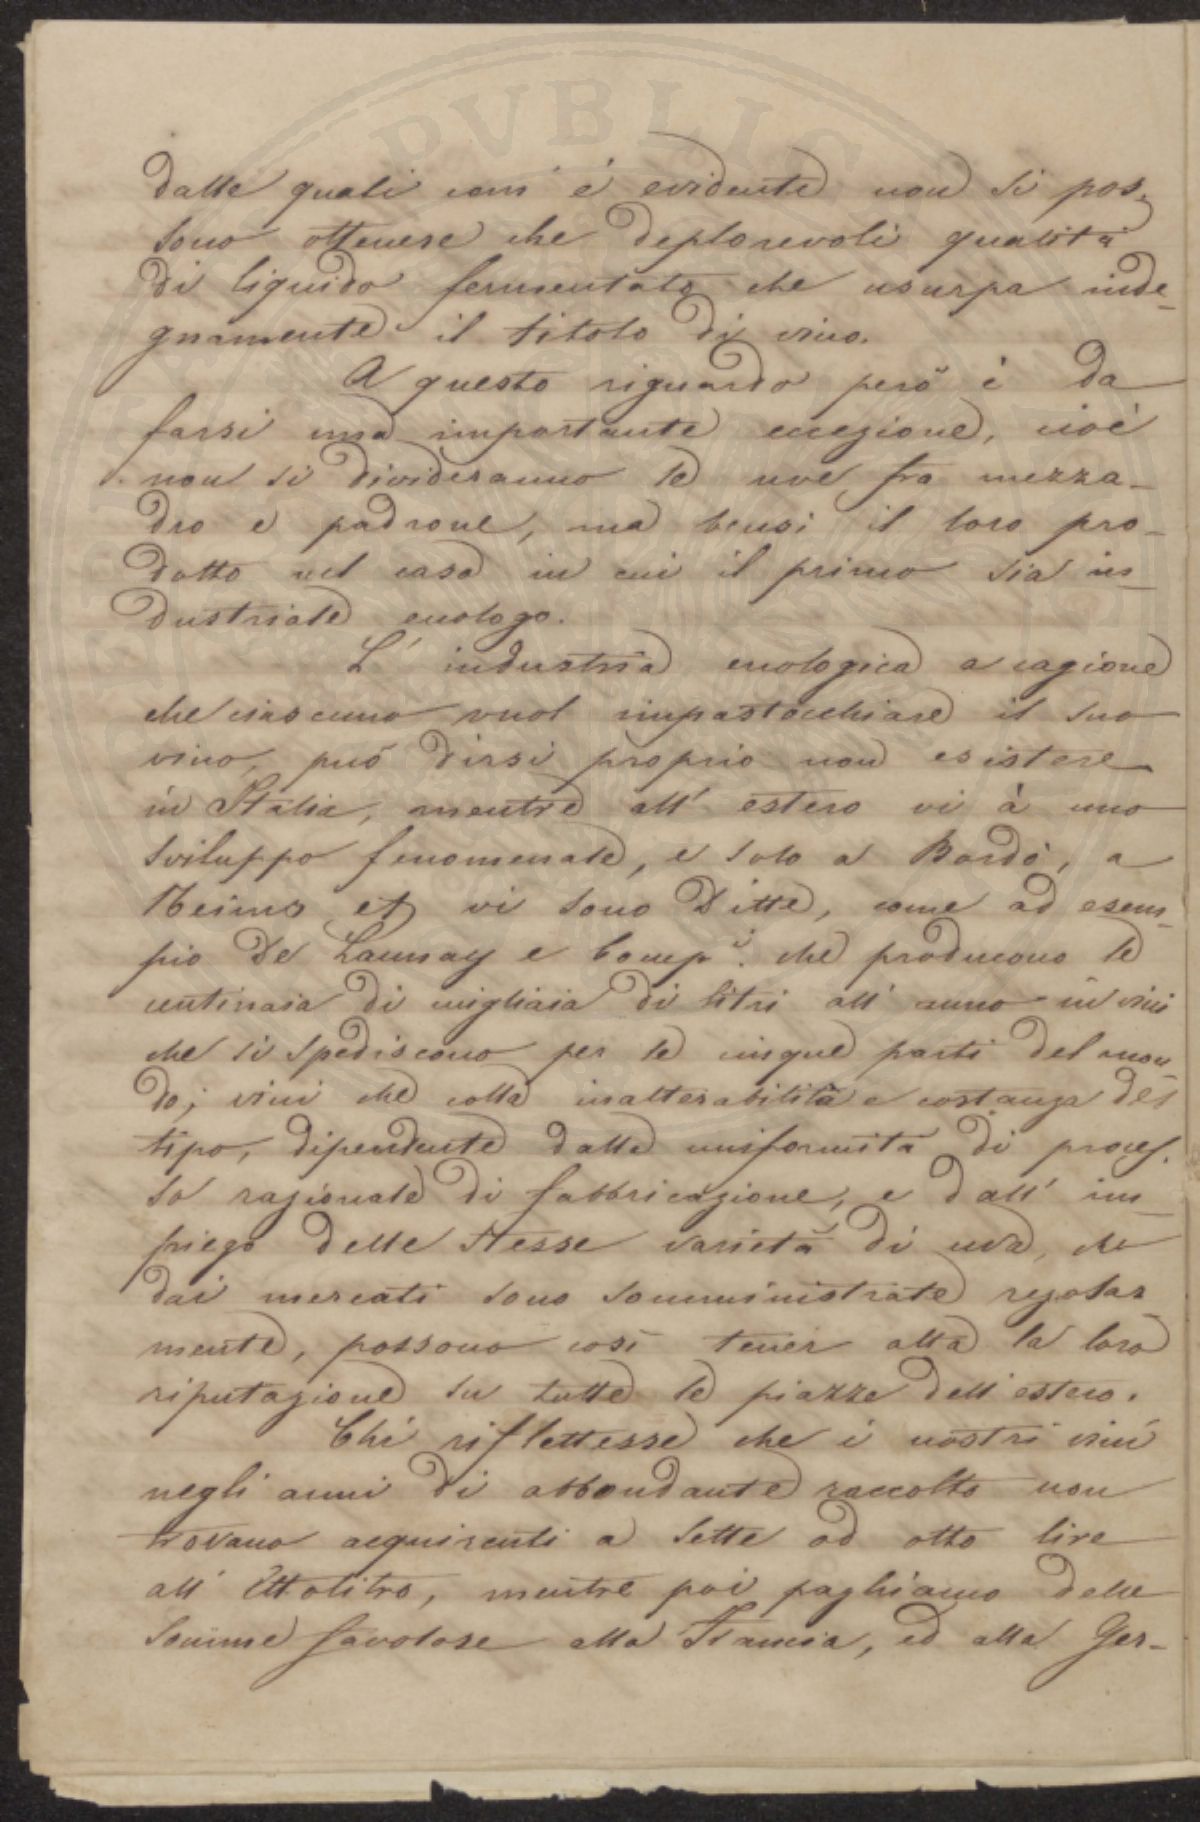 dalle quali com' è evidente non si pos-
sono ottenere che deplorevoli qualità
di liquido fermentato che usurpa inde-
gnamente il titolo di vino.
A questo riguardo però è da
farsi una importante eccezione, cioè
non si divideranno le uve fra mezza-
dro e padrone, ma bensi il loro pro-
dotto nel caso in cui il primo sia in-
dustriale enologo.
L' industria enologica a cagione
che ciascuno vuol impastocchiare il suo
vino, può dirsi proprio non esistere
in Italia, mentre all' estero vi à uno
sviluppo fenomenale, e solo a Bordò, a
Reims et vi sono Ditte, come ad esem-
pio De Launay e Comp.i che producono le
centinaia di migliaia di litri all' anno in vini
che si spediscono per le cinque parti del mon-
do; vini che colla inalterabilità e costanza del
tipo, dipendente dalla uniformità di proces-
so razionale di fabbricazione, e dall' im-
piego delle stesse varietà di uva, che
dai mercati sono somministrate regolar
mente, possono così tener alta la loro
riputazione su tutte le piazze dell' estero.
Chi riflettesse che i nostri vini
negli anni di abbondante raccolto non
trovano acquirenti a sette od otto lire
all' Ettolitro, mentre poi paghiamo delle
somme favolose alla Francia, ed alla Ger-
PVBLIC